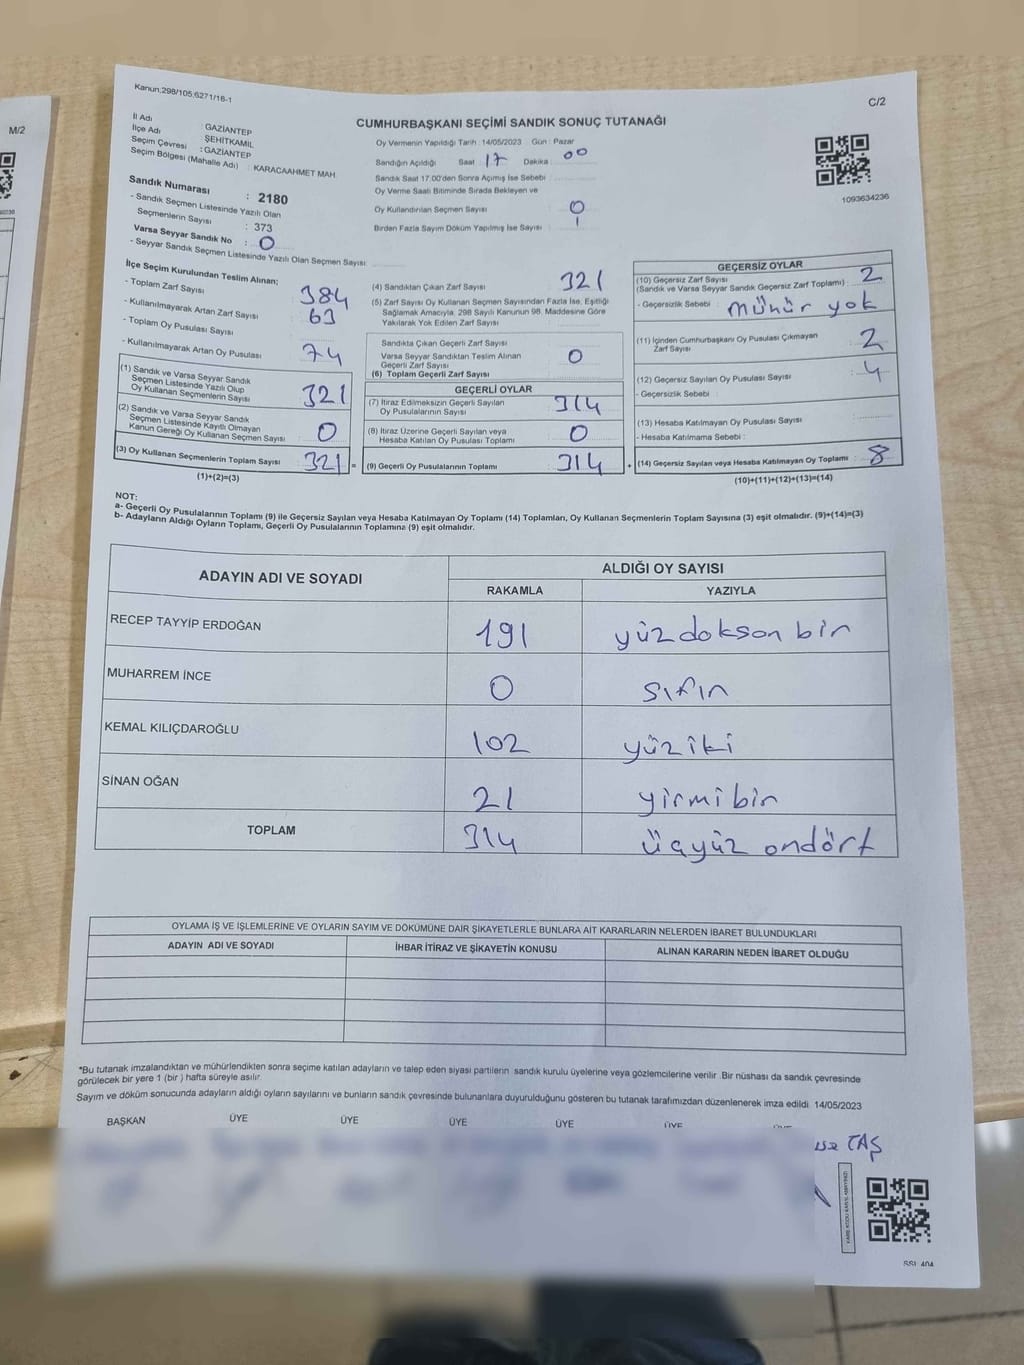 M/2
Kanun,298/105,6271/18-1
C/2
CUMHURBAŞKANI SEÇİMİ SANDIK SONUÇ TUTANAĞI
İl Adı : GAZİANTEP
İlçe Adı : ŞEHİTKAMİL
Seçim Çevresi : GAZİANTEP
Seçim Bölgesi (Mahalle Adı) : KARACAAHMET MAH.
Sandık Numarası : 2180
- Sandık Seçmen Listesinde Yazılı Olan
Seçmenlerin Sayısı : 373
Varsa Seyyar Sandık No : 0
- Seyyar Sandık Seçmen Listesinde Yazılı Olan Seçmen Sayısı:
Oy Vermenin Yapıldığı Tarih : 14/05/2023 Gün : Pazar
Sandığın Açıldığı Saat 17 Dakika 00
Sandık Saat 17:00'den Sonra Açımış İse Sebebi :
Oy Verme Saati Bitiminde Sırada Bekleyen ve
Oy Kullandırılan Seçmen Sayısı : 0
Birden Fazla Sayım Döküm Yapılmış İse Sayısı : 1
1093634236
İlçe Seçim Kurulundan Teslim Alınan;
- Toplam Zarf Sayısı : 384
- Kullanılmayarak Artan Zarf Sayısı : 63
- Toplam Oy Pusulası Sayısı :
- Kullanılmayarak Artan Oy Pusulası : 74
(1) Sandık ve Varsa Seyyar Sandık
Seçmen Listesinde Yazılı Olup
Oy Kullanan Seçmenlerin Sayısı : 321
(2) Sandık ve Varsa Seyyar Sandık
Seçmen Listesinde Kayıtlı Olmayan
Kanun Gereği Oy Kullanan Seçmen Sayısı : 0
(3) Oy Kullanan Seçmenlerin Toplam Sayısı : 321
(1)+(2)=(3)
(4) Sandıktan Çıkan Zarf Sayısı : 321
(5) Zarf Sayısı Oy Kullanan Seçmen Sayısından Fazla İse, Eşitliği
Sağlamak Amacıyla, 298 Sayılı Kanunun 98. Maddesine Göre
Yakılarak Yok Edilen Zarf Sayısı :
Sandıkta Çıkan Geçerli Zarf Sayısı :
Varsa Seyyar Sandıktan Teslim Alınan
Geçerli Zarf Sayısı : 0
(6) Toplam Geçerli Zarf Sayısı :
GEÇERLİ OYLAR
(7) İtiraz Edilmeksizin Geçerli Sayılan
Oy Pusulalarının Sayısı : 314
(8) İtiraz Üzerine Geçerli Sayılan veya
Hesaba Katılan Oy Pusulası Toplamı : 0
= (9) Geçerli Oy Pusulalarının Toplamı : 314
GEÇERSİZ OYLAR
(10) Geçersiz Zarf Sayısı
(Sandık ve Varsa Seyyar Sandık Geçersiz Zarf Toplamı) : 2
- Geçersizlik Sebebi : mühür yok
(11) İçinden Cumhurbaşkanı Oy Pusulası Çıkmayan
Zarf Sayısı : 2
(12) Geçersiz Sayılan Oy Pusulası Sayısı : 4
- Geçersizlik Sebebi :
(13) Hesaba Katılmayan Oy Pusulası Sayısı :
- Hesaba Katılmama Sebebi :
+ (14) Geçersiz Sayılan veya Hesaba Katılmayan Oy Toplamı : 8
(10)+(11)+(12)+(13)=(14)
NOT:
a- Geçerli Oy Pusulalarının Toplamı (9) ile Geçersiz Sayılan veya Hesaba Katılmayan Oy Toplamı (14) Toplamları, Oy Kullanan Seçmenlerin Toplam Sayısına (3) eşit olmalıdır. (9)+(14)=(3)
b- Adayların Aldığı Oyların Toplamı, Geçerli Oy Pusulalarının Toplamına (9) eşit olmalıdır.
ADAYIN ADI VE SOYADI ALDIĞI OY SAYISI
RAKAMLA YAZIYLA
RECEP TAYYİP ERDOĞAN 191 yüzdoksan bir
MUHARREM İNCE 0 sıfır
KEMAL KILIÇDAROĞLU 102 yüziki
SİNAN OĞAN 21 yirmibir
TOPLAM 314 üçyüz ondört
OYLAMA İŞ VE İŞLEMLERİNE VE OYLARIN SAYIM VE DÖKÜMÜNE DAİR ŞİKAYETLERLE BUNLARA AİT KARARLARIN NELERDEN İBARET BULUNDUKLARI
ADAYIN ADI VE SOYADI İHBAR İTİRAZ VE ŞİKAYETİN KONUSU ALINAN KARARIN NEDEN İBARET OLDUĞU
*Bu tutanak imzalandıktan ve mühürlendikten sonra seçime katılan adayların ve talep eden siyasi partilerin sandık kurulu üyelerine veya gözlemcilerine verilir .Bir nüshası da sandık çevresinde
görülecek bir yere 1 (bir ) hafta süreyle asılır.
Sayım ve döküm sonucunda adayların aldığı oyların sayılarını ve bunların sandık çevresinde bulunanlara duyurulduğunu gösteren bu tutanak tarafımızdan düzenlenerek imza edildi. 14/05/2023
BAŞKAN ÜYE ÜYE ÜYE ÜYE ÜYE
TAŞ